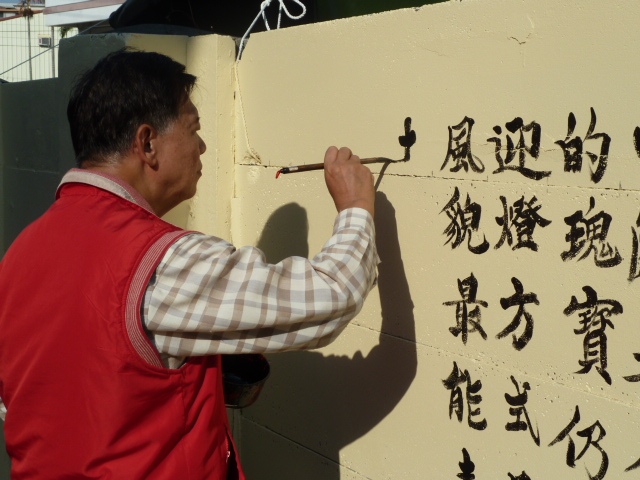 的瑰寶仍
迎燈方式
風貌最能